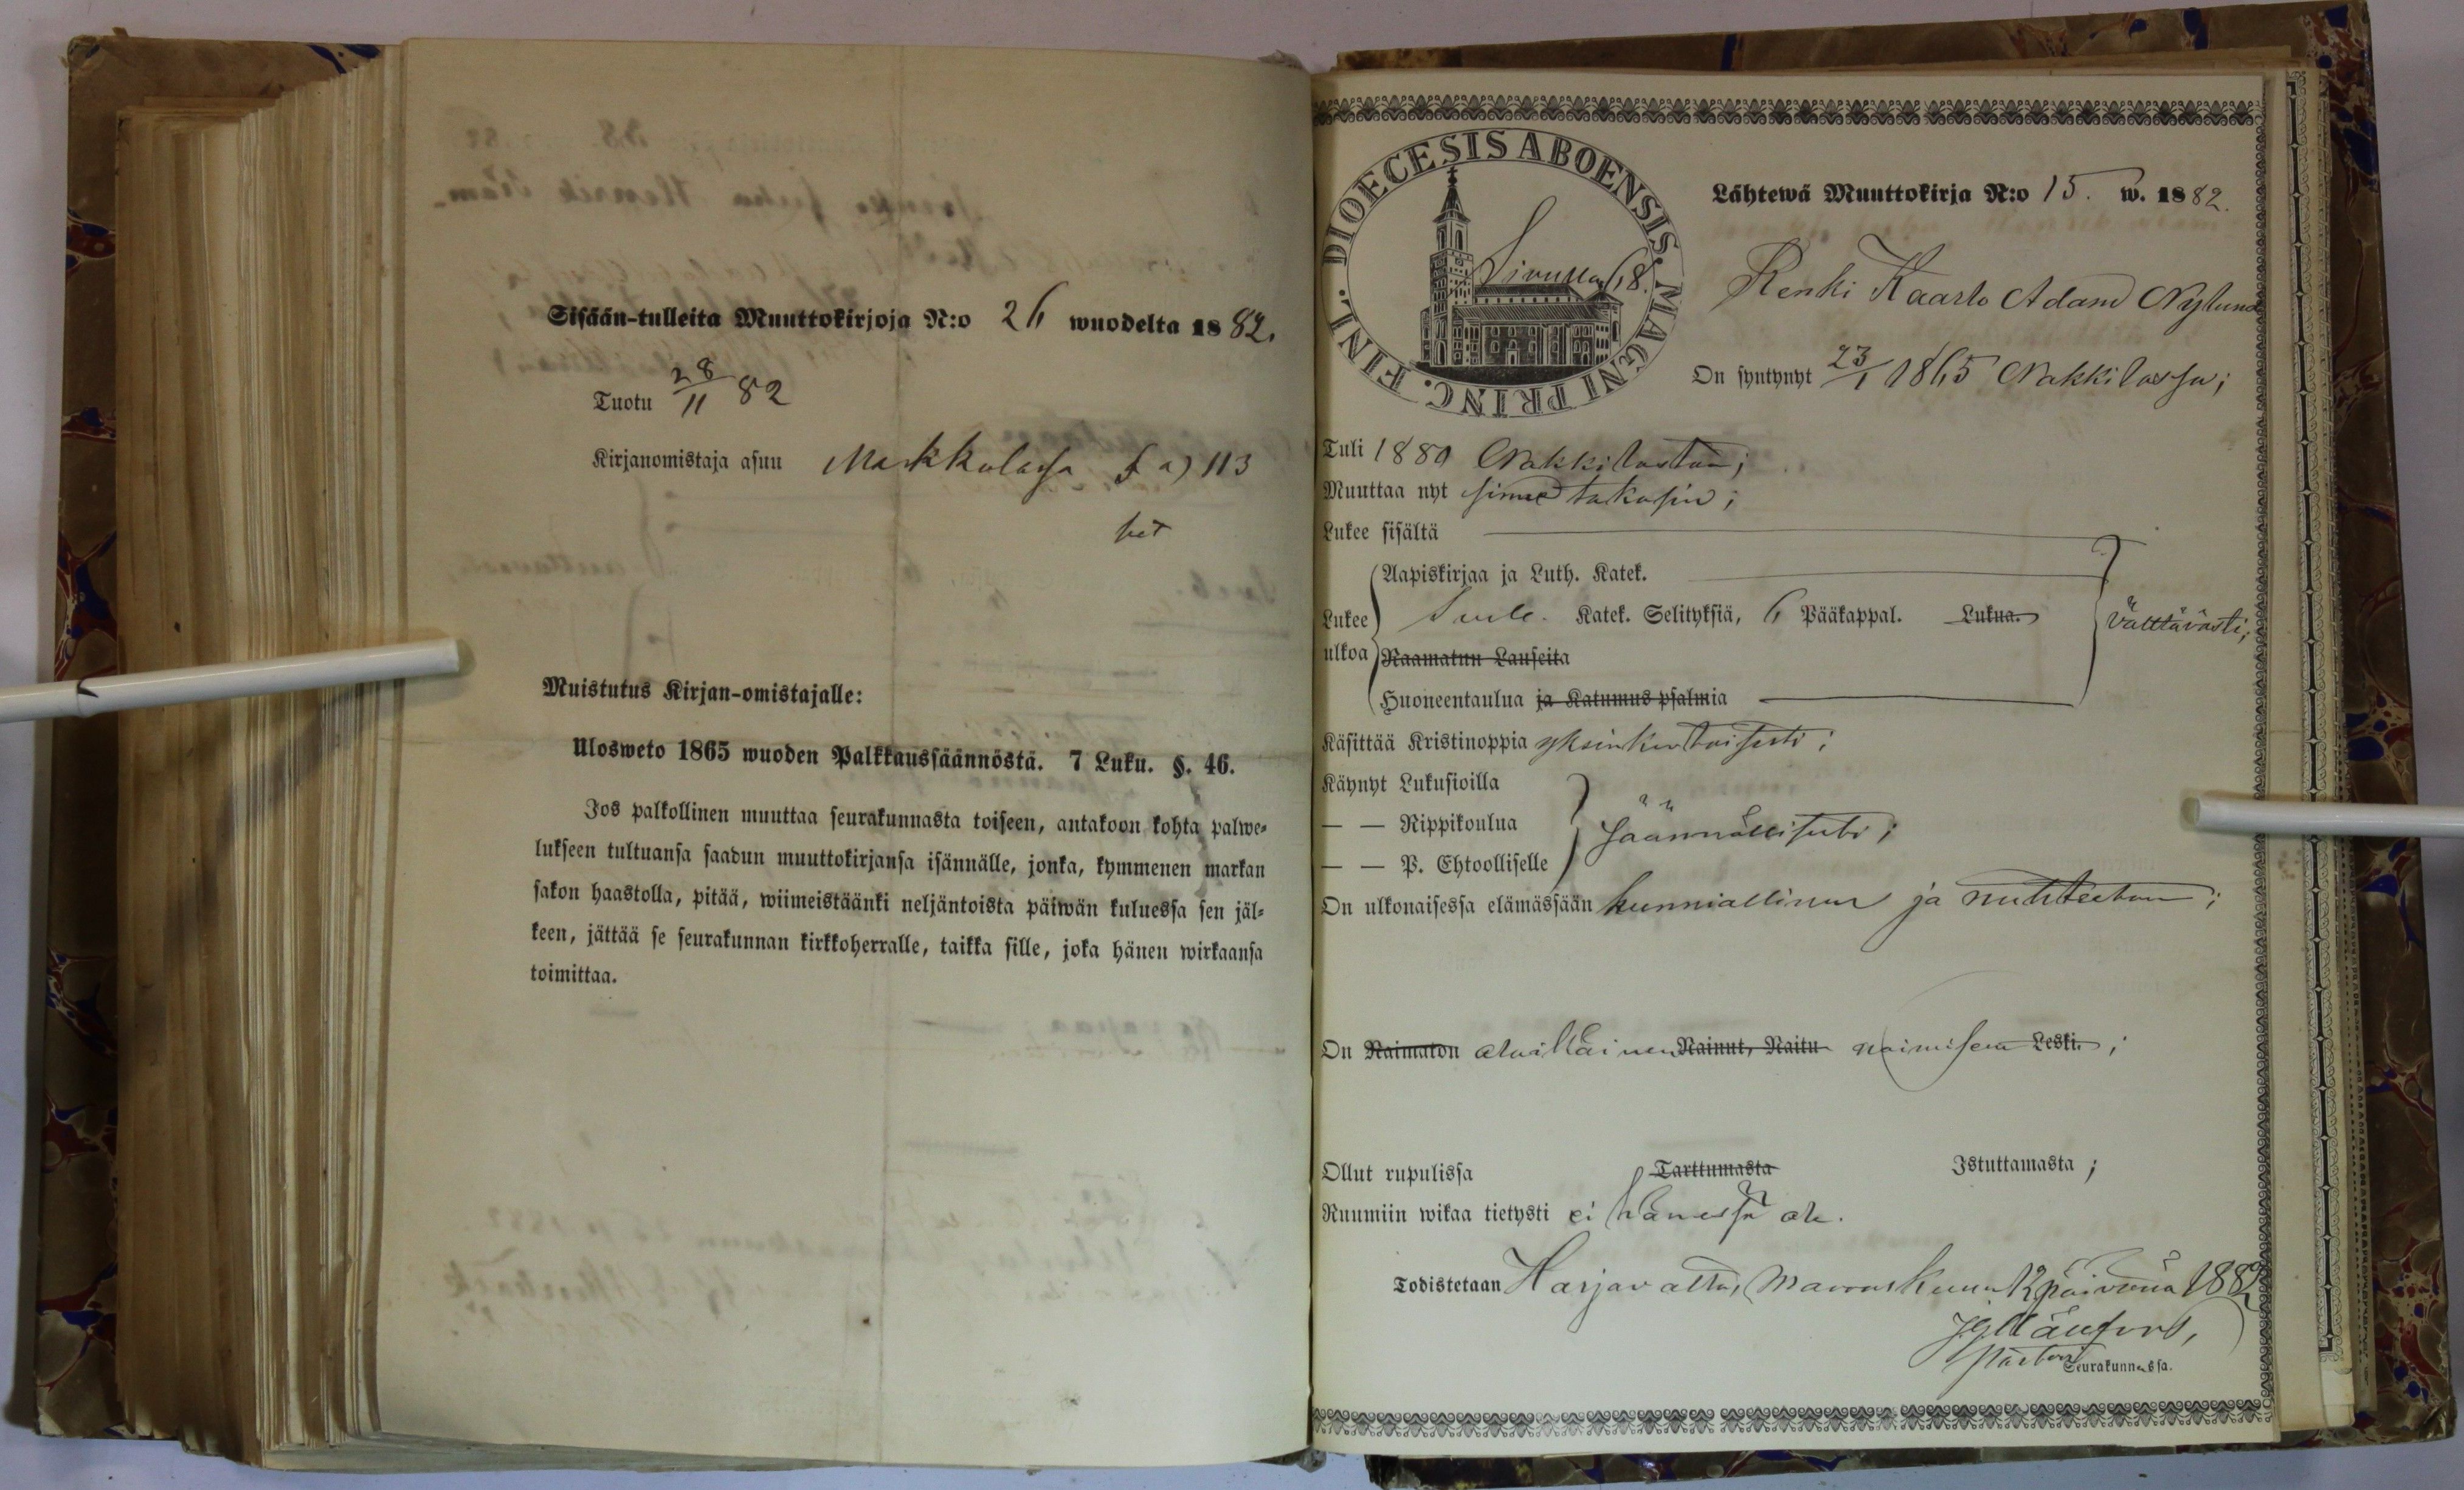 Sisään-tulleita Muuttokirjoja N:o 26 wuodelta 1882.
Tuotu 28/11 82
Kirjanomistaja asuu Markkulassa f a) 113
Muistutus Kirjan-omistajalle:
Ulosweto 1865 wuoden Palkkaussäännöstä. 7 Luku. §. 46.
Jos palkollinen muuttaa seurakunnasta toiseen, antakoon kohta palwe-
lukseen tultuansa saadun muuttokirjansa isännälle, jonka, kymmenen markan
sakon haastolla, pitää, wiimeistäänki neljäntoista päiwän kuluessa sen jäl-
keen, jättää se seurakunnan kirkkoherralle, taikka sille, joka hänen wirkaansa
toimittaa.
DIOECESIS ABOENSIS. MAGNI PRINC. FINL.
Sivulla 68.
Lähtewä Muuttokirja N:o 15. w. 1882.
Renki Kaarlo Adam Nylund
On syntynyt 23/1 1865 Nakkilassa;
Tuli 1880 Nakkilastan;
Muuttaa nyt sinne takasin;
Lukee sisältä
Aapiskirjaa ja Luth. Katek.
Lukee ulkoa Katek. Selityksiä, 6 Pääkappal. Lukua. välttävästi;
Raamatun Lauseita
Huoneentaulua ja Katumus psalmia
Käsittää Kristinoppia yksinkertaisesti;
Käynyt Lukusioilla
— — Rippikoulua säännöllisesti;
— — P. Ehtoolliselle
On ulkonaisessa elämässään kunniallinen ja nuhteeton;
On Naimaton awillainen Nainut, Naitu naimiseen Leski. ;
Ollut rupulissa Tarttumasta Istuttamasta ;
Ruumiin wikaa tietysti ei hänessä ole.
Todistetaan Harjavalta, Marraskuun 12 päivänä 1882
Pastori
Seurakunnassa.